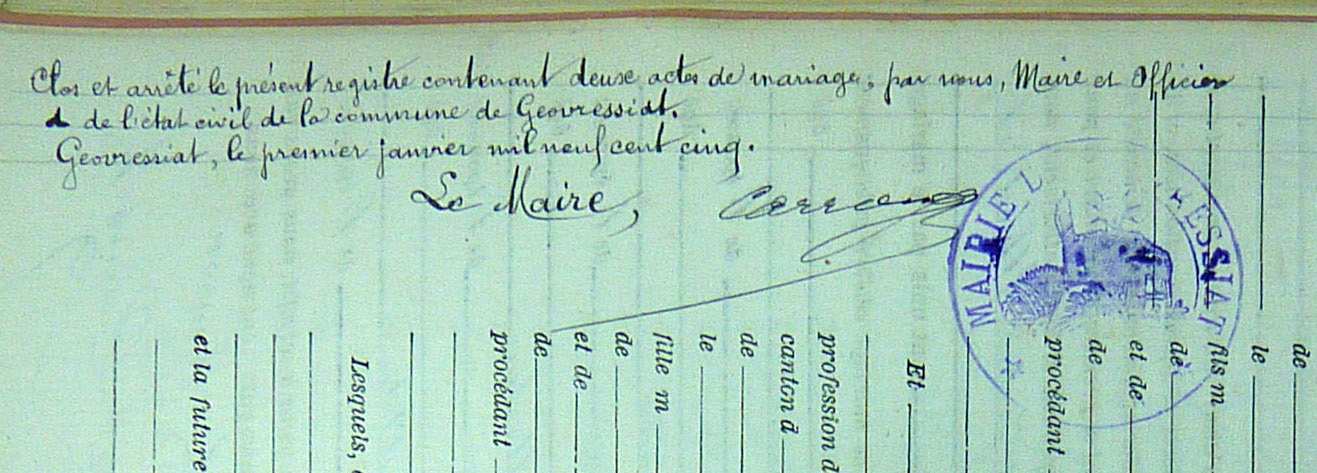 Clos et arrêté le présent registre contenant deux actes de mariage, par nous, Maire et Officier
de l'état civil de la commune de Geovressiat.
Geovressiat, le premier janvier mil neuf cent cinq.
Le Maire,
MAIRIE ESSIAT
de
le
fils m
de
et de
de
procédant
Et
profession d
canton d
de
le
fille m
de
et de
de
procédant
Lesquels,
et la future